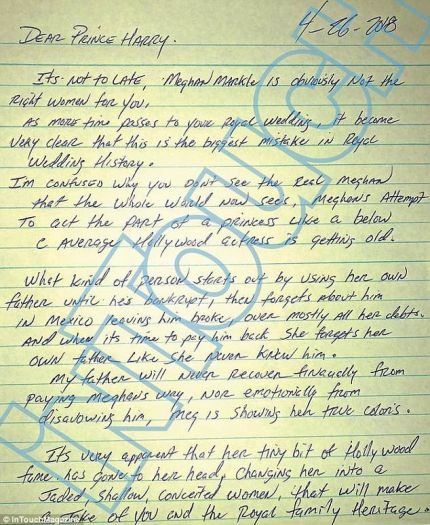 4-26-2018
DEAR PRINCE HARRY.
ITS NOT TO LATE, MEGHAN MARKLE IS OBVIOUSLY NOT THE
RIGHT WOMEN FOR YOU.
AS MORE TIME PASSES TO YOUR ROYAL WEDDING, IT BECAME
VERY CLEAR THAT THIS IS THE BIGGEST MISTAKE IN ROYAL
WEDDING HISTORY.
IM CONFUSED WHY YOU DON'T SEE THE REAL MEGHAN
THAT THE WHOLE WORLD NOW SEES, MEGHAN'S ATTEMPT
TO ACT THE PART OF A PRINCESS LIKE A BELOW
C AVERAGE HOLLYWOOD ACTRESS IS GETTING OLD.
WHAT KIND OF PERSON STARTS OUT BY USING HER OWN
FATHER UNTIL HE'S BANKRUPT, THEN FORGETS ABOUT HIM
IN MEXICO LEAVING HIM BROKE, OVER MOSTLY ALL HER DEBTS.
AND WHEN ITS TIME TO PAY HIM BACK SHE FORGETS HER
OWN FATHER LIKE SHE NEVER KNEW HIM.
MY FATHER WILL NEVER RECOVER FINACIALLY FROM
PAYING MEGHANS WAY, NOR EMOTIONALLY FROM
DISAVOWING HIM, MEG IS SHOWING HER TRUE COLORS.
ITS VERY APPARENT THAT HER TINY BIT OF HOLLYWOOD
FAME HAS GONE TO HER HEAD, CHANGING HER INTO A
JADED, SHALLOW, CONCEITED WOMEN, THAT WILL MAKE
A JOKE OF YOU AND THE ROYAL FAMILY HERITAGE.
InTouch
© InTouchMagazine